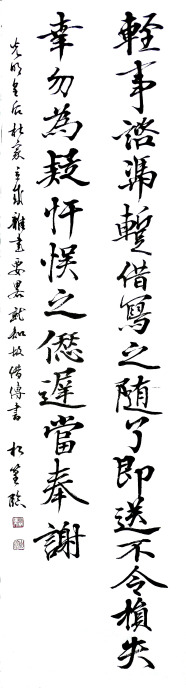 輕事諮馮蹔借寫之随了即送不令損失
幸勿為疑忓悮之愆遲當奉謝
光明皇后杜家立成雜書要畧就知故借傳書 松 臨